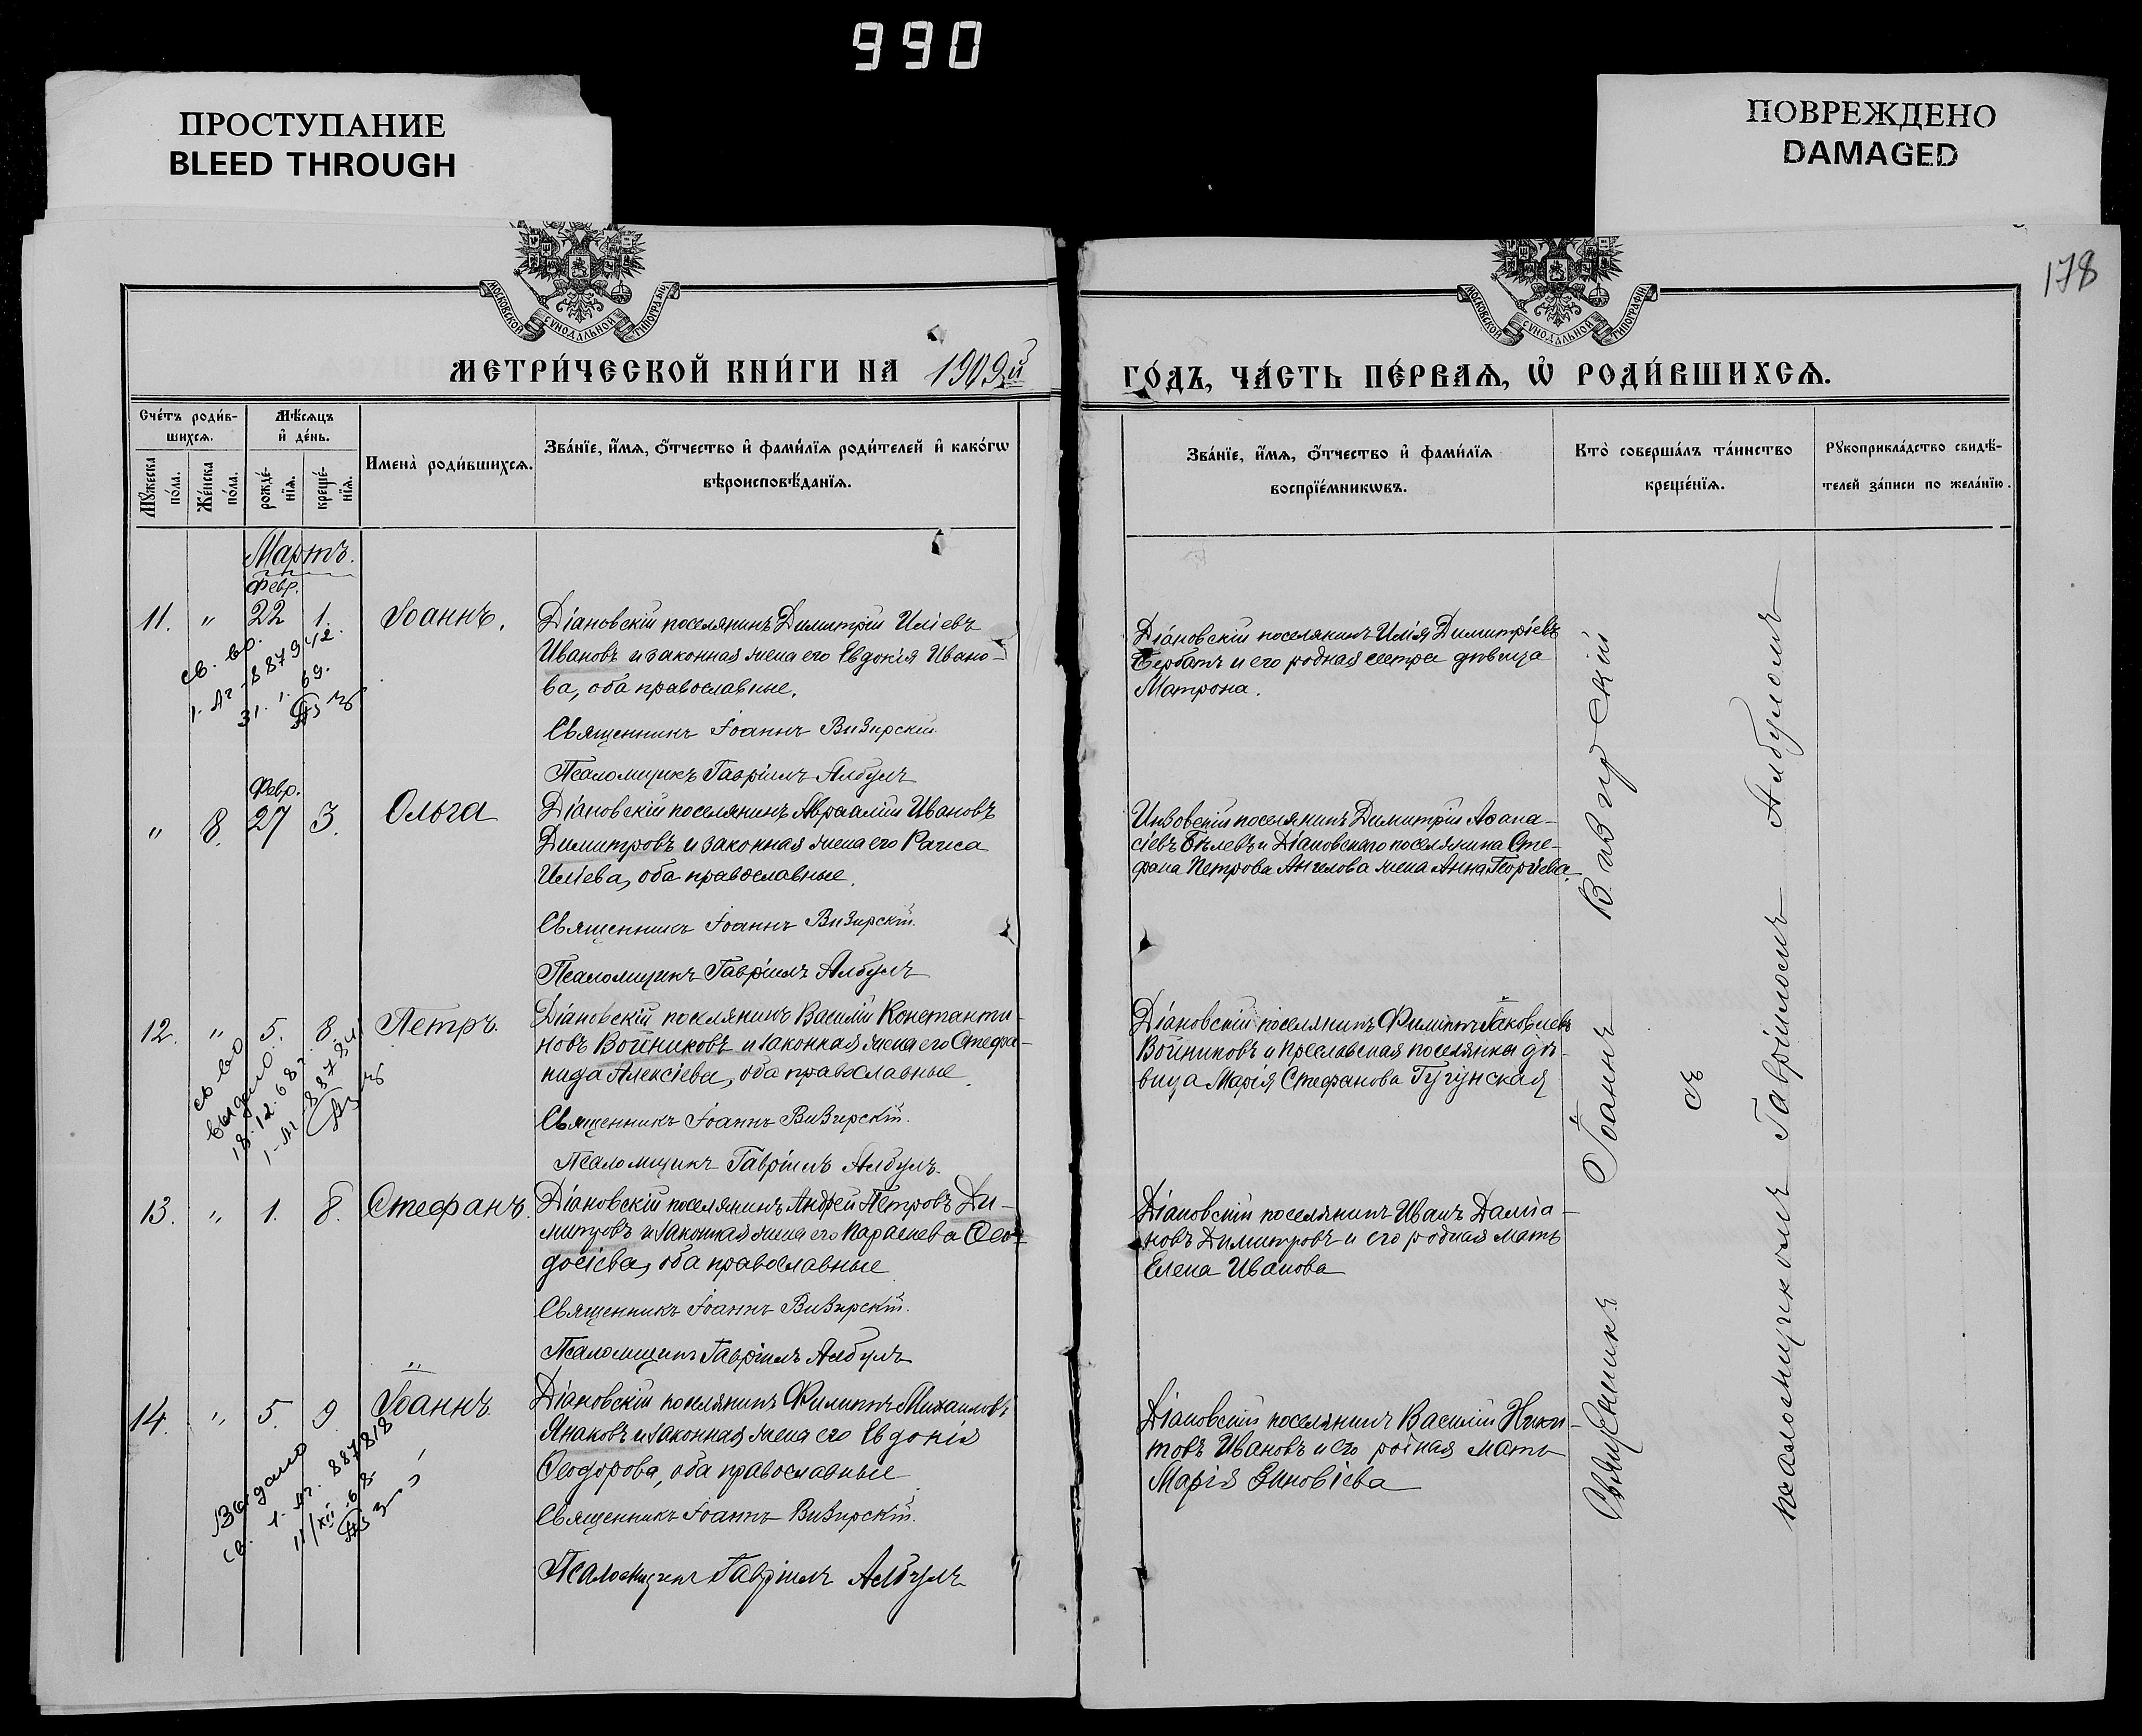 990
ПРОСТУПАНИЕ
BLEED THROUGH
ПОВРЕЖДЕНО
DAMAGED
178
МОСКОВСКОЙ СУНОДАЛЬНОЙ ТИПОГРАФІИ
МОСКОВСКОЙ СУНОДАЛЬНОЙ ТИПОГРАФІИ
МЕТРИ́ЧЕСКОЙ КНИ́ГИ НА 1909й
ГО́ДЪ, ЧА́СТЬ ПЕ́РВАѦ, Ѡ҆ РОДИ́ВШИХСѦ.
Сче́тъ роди́в-
шихсѧ.
Мѣ́сѧцъ
и҆ де́нь.
Мꙋ́жеска
по́ла.
Же́нска
по́ла.
рожде́-
нїѧ.
креще́-
нїѧ.
Имена̀ роди́вшихсѧ.
Зва́нїе, и҆́мѧ, ѻ҆́тчество и҆ фами́лїѧ роди́телей и҆ како́гѡ
вѣроисповѣ́данїѧ.
Зва́нїе, и҆́мѧ, ѻ҆́тчество и҆ фами́лїѧ
воспрїе́мникѡвъ.
Кто̀ соверша́лъ та́инство
креще́нїѧ.
Рꙋкоприкла́дство свидѣ́-
телей за́писи по жела́нїю.
Мартъ.
Февр.
11. " 22 1. Іоаннъ.
Діановскій поселянинъ Димитрій Иліевъ
Ивановъ и законная жена его Евдокія Ивано-
ва, оба православные.
Священникъ Іоаннъ Визирскій
Псаломщикъ Гавріилъ Албулъ
Діановскій поселянинъ Илія Димитріевъ
Бербатъ и его родная сестра дѣвица
Матрона.
св. во.
1-Аг-887942.
31.1.69.
Февр.
" 8. 27 3. Ольга
Діановскій поселянинъ Авраамій Ивановъ
Димитровъ и законная жена его Раиса
Иліева, оба православные.
Священникъ Іоаннъ Визирскій.
Псаломщикъ Гавріилъ Албулъ
Инзовскій поселянинъ Димитрій Афана-
сіевъ Бѣлевъ и Діановскаго поселянина Сте-
фана Петрова Ангелова жена Анна Георгіева.
12. " 5. 8. Петръ.
Діановскій поселянинъ Василій Константи-
новъ Войниковъ и законная жена его Стефа-
нида Алексіева, оба православные.
Священникъ Іоаннъ Визирскій.
Псаломщикъ Гавріилъ Албулъ.
Діановскій поселянинъ Филиппъ Іаковлевъ
Войниковъ и Преславская поселянка дѣ-
вица Марія Стефанова Гугунская
св во
выдано.
18.12.68 г.
13. " 1. 8. Стефанъ.
Діановскій поселянинъ Андрей Петровъ Ди-
митровъ и законная жена его Параскева Ѳео-
досіева, оба православные
Священникъ Іоаннъ Визирскій.
Псаломщикъ Гавріилъ Албулъ
Діановскій поселянинъ Иванъ Даміа-
новъ Димитровъ и его родная мать
Елена Иванова
14. " 5. 9. Іоаннъ.
Діановскій поселянинъ Филиппъ Михаиловъ
Янаковъ и законная жена его Евдокія
Ѳеодорова, оба православные
Священникъ Іоаннъ Визирскій.
Псаломщикъ Гавріилъ Албулъ
Діановскій поселянинъ Василій Ники-
товъ Ивановъ и его родная мать
Марія Зиновіева
Выдано
св. 1-Аг. 887818
11/XII-68
Священникъ Іоаннъ Визирскій
съ
псаломщикомъ Гавріиломъ Албуломъ